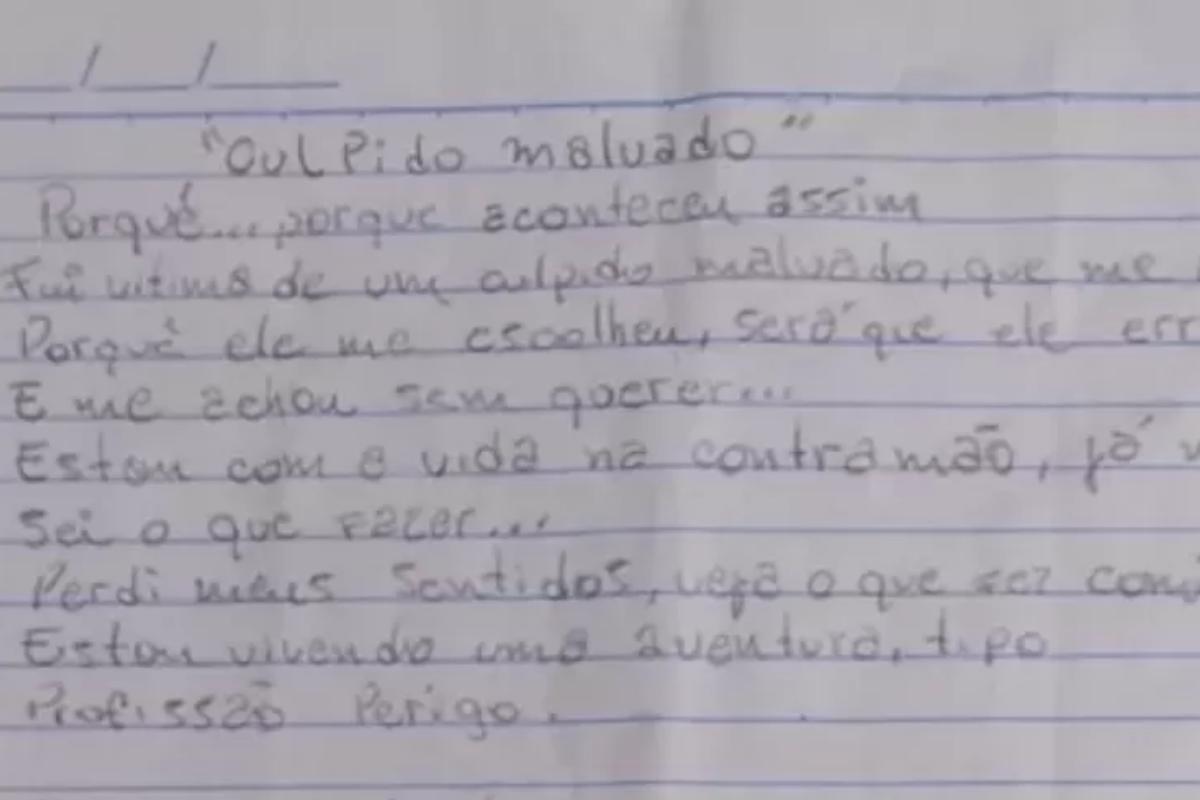 "Culpido malvado"
Porquê... porque aconteceu assim
Fui vitima de um culpido malvado, que me
Porquê ele me escolheu, será que ele err
E me achou sem querer...
Estou com a vida na contramão, já
Sei o que fazer...
Perdi meus sentidos, veja o que fez com
Estou vivendo uma aventura, tipo
Profissão Perigo.